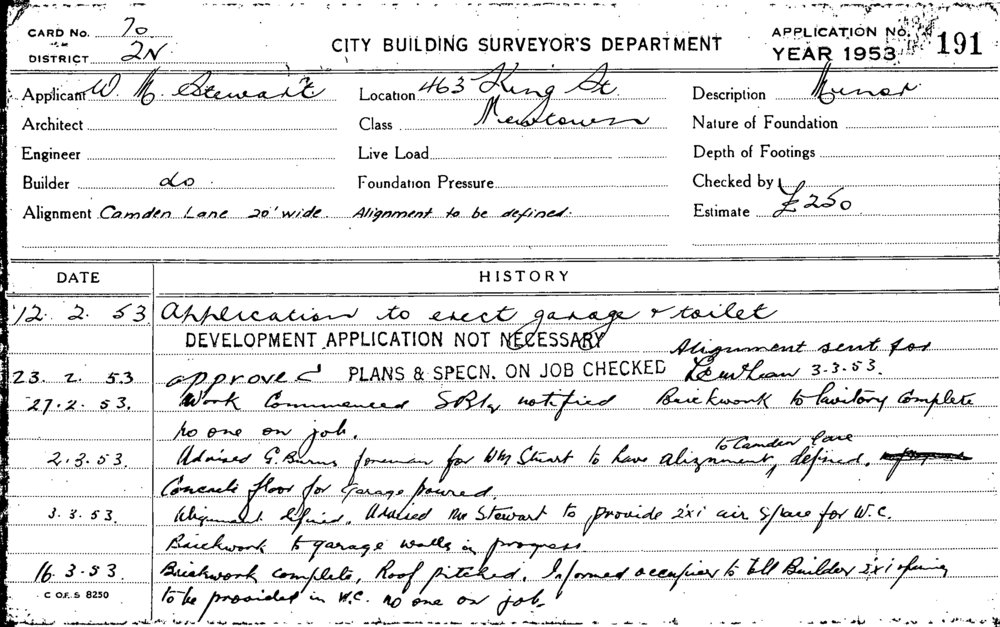 CARD No. 70
DISTRICT 2N
CITY BUILDING SURVEYOR'S DEPARTMENT
APPLICATION No. 191
YEAR 1953
Applicant W. M. Stewart
Location 463 King St.
Description Minor
Architect
Class Newtown
Nature of Foundation
Engineer
Live Load
Depth of Footings
Builder do
Foundation Pressure
Checked by
Alignment Camden Lane 20' wide. Alignment to be defined.
Estimate £250
DATE HISTORY
12. 2. 53 Application to erect garage & toilet
DEVELOPMENT APPLICATION NOT NECESSARY
Alignment sent for
23. 2. 53 approved PLANS & SPECN. ON JOB CHECKED 3-3-53.
27.2.53. Work Commenced notified Brickwork to lavitory complete
no one on job.
to Camden Lane
2.3.53. Advised G. Burns foreman for WM Stuart to have alignment, defined.
Concrete floor for garage poured.
3.3.53. Alignment defined. Advised Mr Stewart to provide 2x1 air space for W.C.
Brickwork to garage walls in progress
16.3.53. Brickwork complete, Roof pitched. Informed occupier to tell Builder 2x1 opening
to be provided in W.C. no one on job.
C OF S 8250